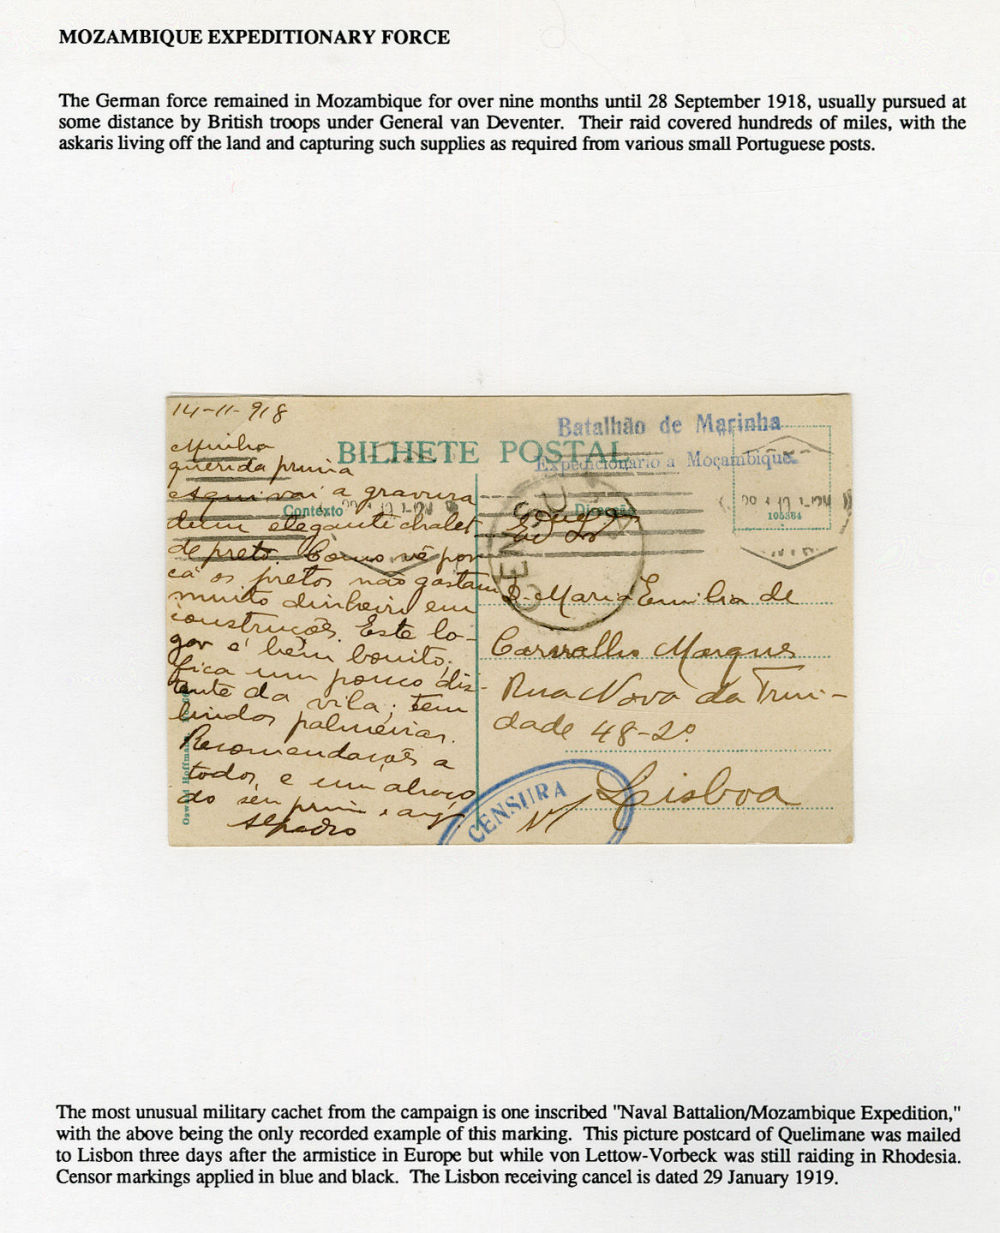 MOZAMBIQUE EXPEDITIONARY FORCE
The German force remained in Mozambique for over nine months until 28 September 1918, usually pursued at
some distance by British troops under General van Deventer. Their raid covered hundreds of miles, with the
askaris living off the land and capturing such supplies as required from various small Portuguese posts.
14-11-918
Minha
querida prima
Aqui vai a gravura
dum elegante chalet
de preto. Como vê por
cá os pretos não gastam
muito dinheiro em
construções. Este lo-
gar é bem bonito,
fica um pouco dis-
tante da vila; tem
lindas palmeiras.
Recomendações a
todos, e um abraço
do seu primo
BILHETE POSTAL
Contexto
Direcção
Batalhão de Marinha
Expedicionario a Moçambique
105384
CENSURA
D. Maria Emilia de
Carvalho Marques
Rua Nova da Trin-
dade 48-2º
Lisboa
CENSURA
The most unusual military cachet from the campaign is one inscribed "Naval Battalion/Mozambique Expedition,"
with the above being the only recorded example of this marking. This picture postcard of Quelimane was mailed
to Lisbon three days after the armistice in Europe but while von Lettow-Vorbeck was still raiding in Rhodesia.
Censor markings applied in blue and black. The Lisbon receiving cancel is dated 29 January 1919.